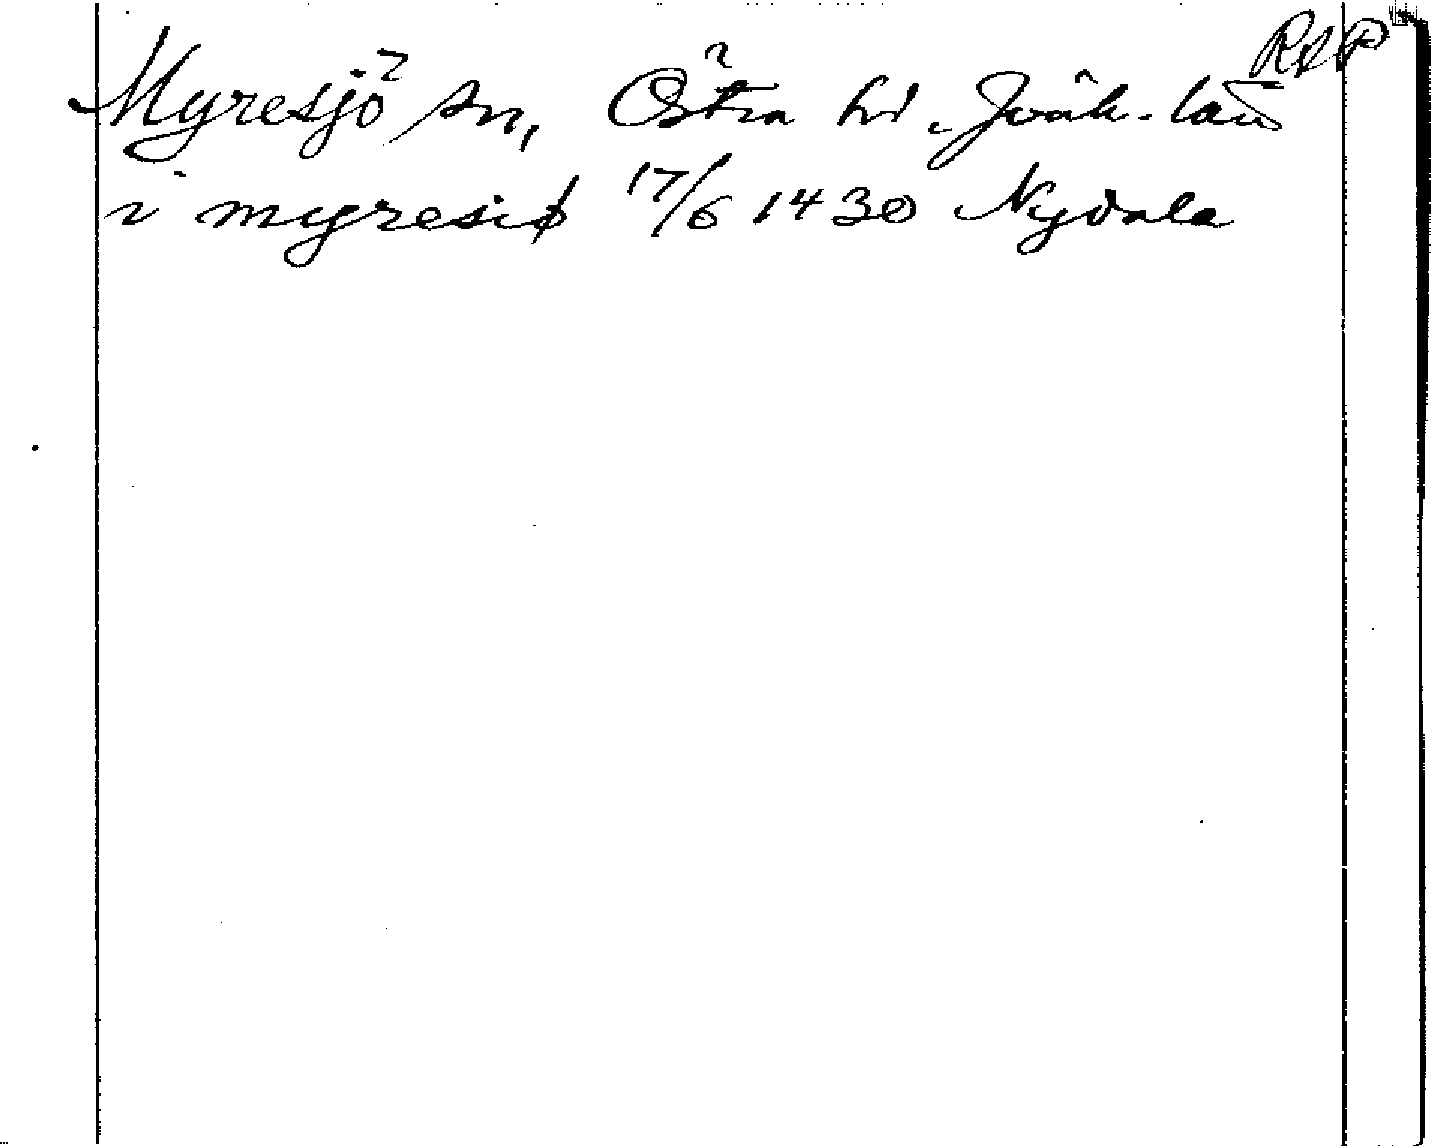 RAP
Myresjö sn, Östra hd. Jönk. län
i myresiø 17/6 1430 Nydala